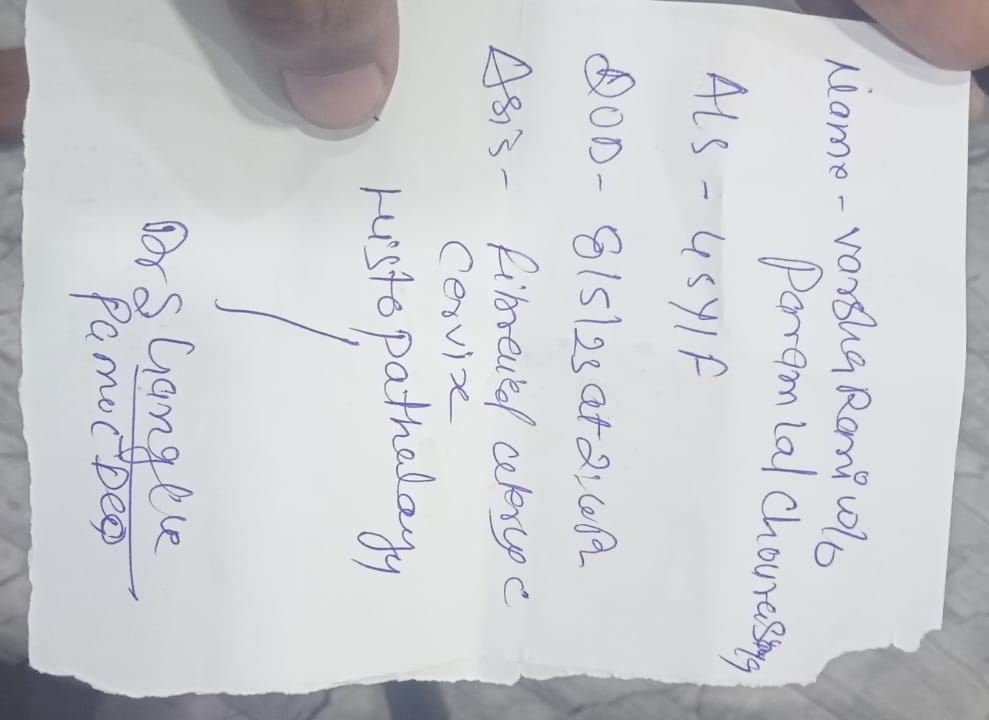 Name - Varsha Rani w/o
Parram lal Chourasiya
A/S - 45y/F
DOD - 8/5/23 at
Δsis - fibroid uterus c
Cervix
Histopathology
Dr S Gangle